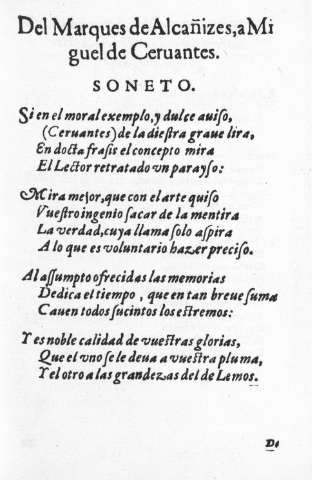 Del Marques de Alcañizes, a Mi
guel de Ceruantes.
SONETO.
Si en el moral exemplo, y dulce auiso,
(Ceruantes) de la diestra graue lira,
En docta frasis el concepto mira
El Lector retratado vn parayso:
Mira mejor, que con el arte quiso
Vuestro ingenio sacar de la mentira
La verdad, cuya llama solo aspira
A lo que es voluntario hazer preciso.
Al assumpto ofrecidas las memorias
Dedica el tiempo, que en tan breue suma
Cauen todos sucintos los estremos:
Y es noble calidad de vuestras glorias,
Que el vno se le deua a vuestra pluma,
Y el otro a las grandezas del de Lemos.
De